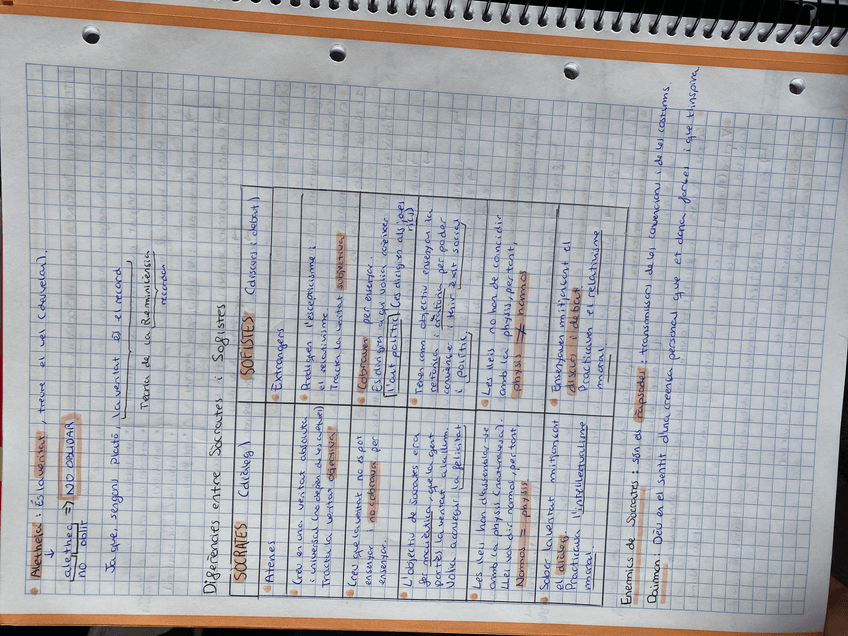 • Aletheia: És la veritat, treure el vel (desvelar).
↓
alethea => NO OBLIDAR
no oblit
Ja que, segons Plató, la veritat és el record.
Teoria de la Reminiscència
recordar
Diferències entre Sòcrates i Sofistes
SÒCRATES (diàleg)
SOFISTES (discurs i debat)
• Atenes
• Extrangers
• Creu en una veritat absoluta
i universal (no depèn de les cultures)
Tracta la veritat objectiva
• Prediquen l'escepticisme i
el relativisme.
Tracta la veritat subjectiva
• Creu que la veritat no es pot
ensenyar i no cobrava per
ensenyar.
• Cobraven per ensenyar
Es dirigien a qui volia conèixer
l'art polític (es dirigien als joves
rics)
• L'objectiu de Sòcrates era
fer maièutica, que la gent
portés la veritat a la llum.
Volia aconseguir la felicitat
• Tenen com objectiu ensenyar la
retòrica i oratòria per poder
convèncer i tenir èxit social
i polític
• Les lleis han d'assemblar-se
amb la physis (naturalesa).
Llei vol dir normos, per tant,
Nomos = physis
• Les lleis no han de coincidir
amb la physis, per tant,
physis ≠ nomos
• Saber la veritat mitjançant
el diàleg
Practicava l'intel·lectualisme
moral
• Ensenyaven mitjançant el
discurs i debat
Practicaven el relativisme
moral
Enemics de Sòcrates: són els rapsodes: transmissors de les convencions i de les costums.
Daimon: Déu en el sentit d'una creença personal que et dona forces i que t'inspira